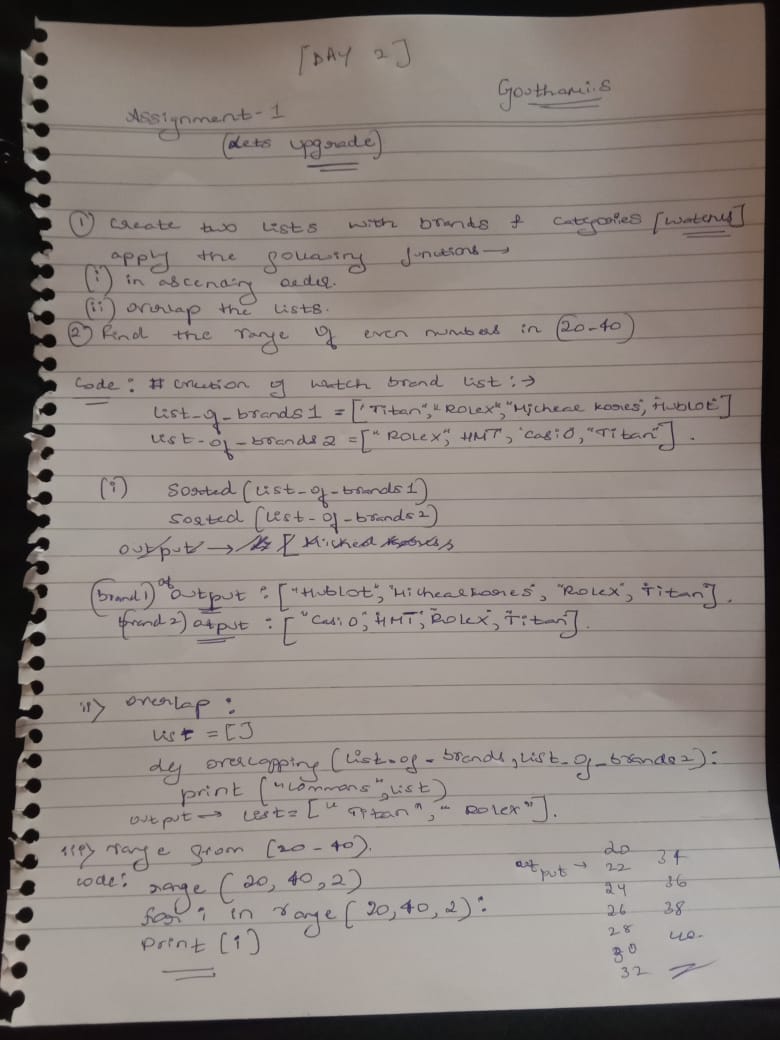 [DAY 2]
Gouthami.S
Assignment-1
(lets upgrade)
① Create two lists with brands & categories [watches]
apply the following functions →
(i) in ascending order.
(ii) overlap the lists.
② Find the range of even numbers in (20-40)
Code: # creation of watch brand list :→
list-of-brands1 = ["Titan", "ROLEX", "Micheal kores", "HUBLOT"]
list-of-brands2 = ["ROLEX", HMT", "CasiO, "Titan"].
(i) Sorted (list-of-brands1)
sorted (list-of-brands2)
output →
(brand1) of output : ["Hublot", "Micheal kores", "Rolex", "Titan].
(brand2) output : ["CasiO", "HMT", "ROLEX", "Titan].
ii) overlap :
list = []
def overlapping (list-of-brands, list-of-brands2):
print ("commons", list)
output → list= ["Titan", "ROLEX"].
iii) range from (20-40).
code: range (20, 40, 2)
for i in range (20, 40, 2):
Print (i)
output → 20
22 34
24 36
26 38
28 40.
30
32